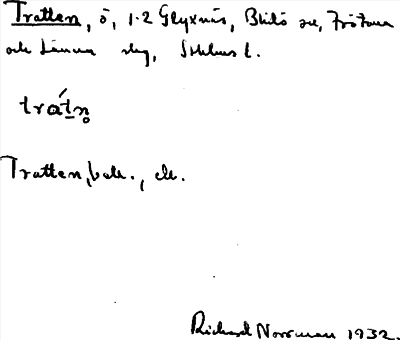 Tratten, ö, 1.2 Glyxnäs, Blidö sn, Frötuna
och Länna slg, Sthlms l.
trátn̥
Tratten, beb., ek.
Richard Norrman 1932.